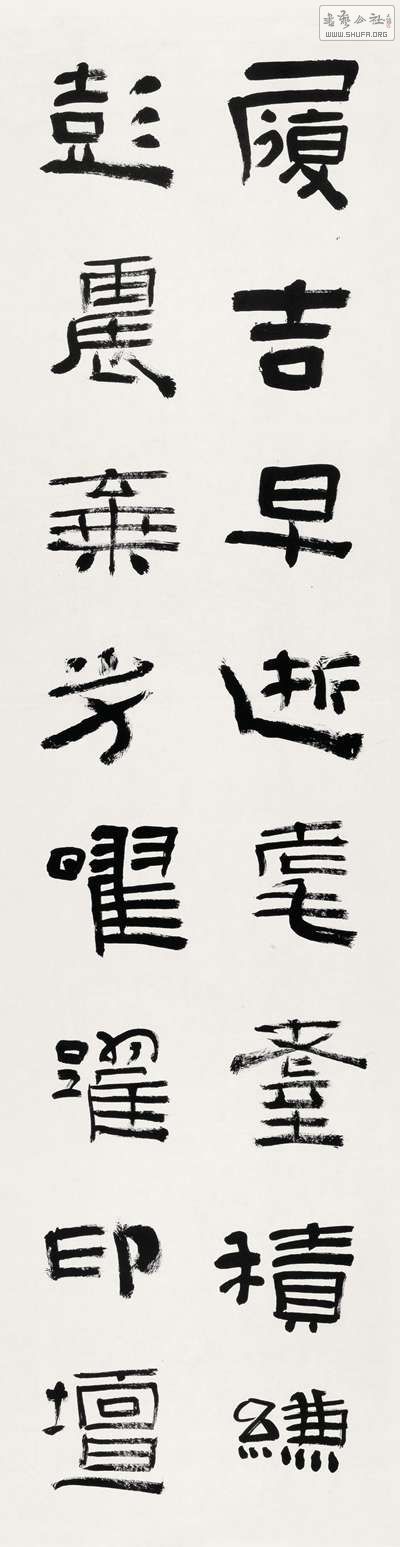 書藝公社
WWW.SHUFA.ORG
履吉早逝耄耋積縑
彭震棄芳曜躍印壇